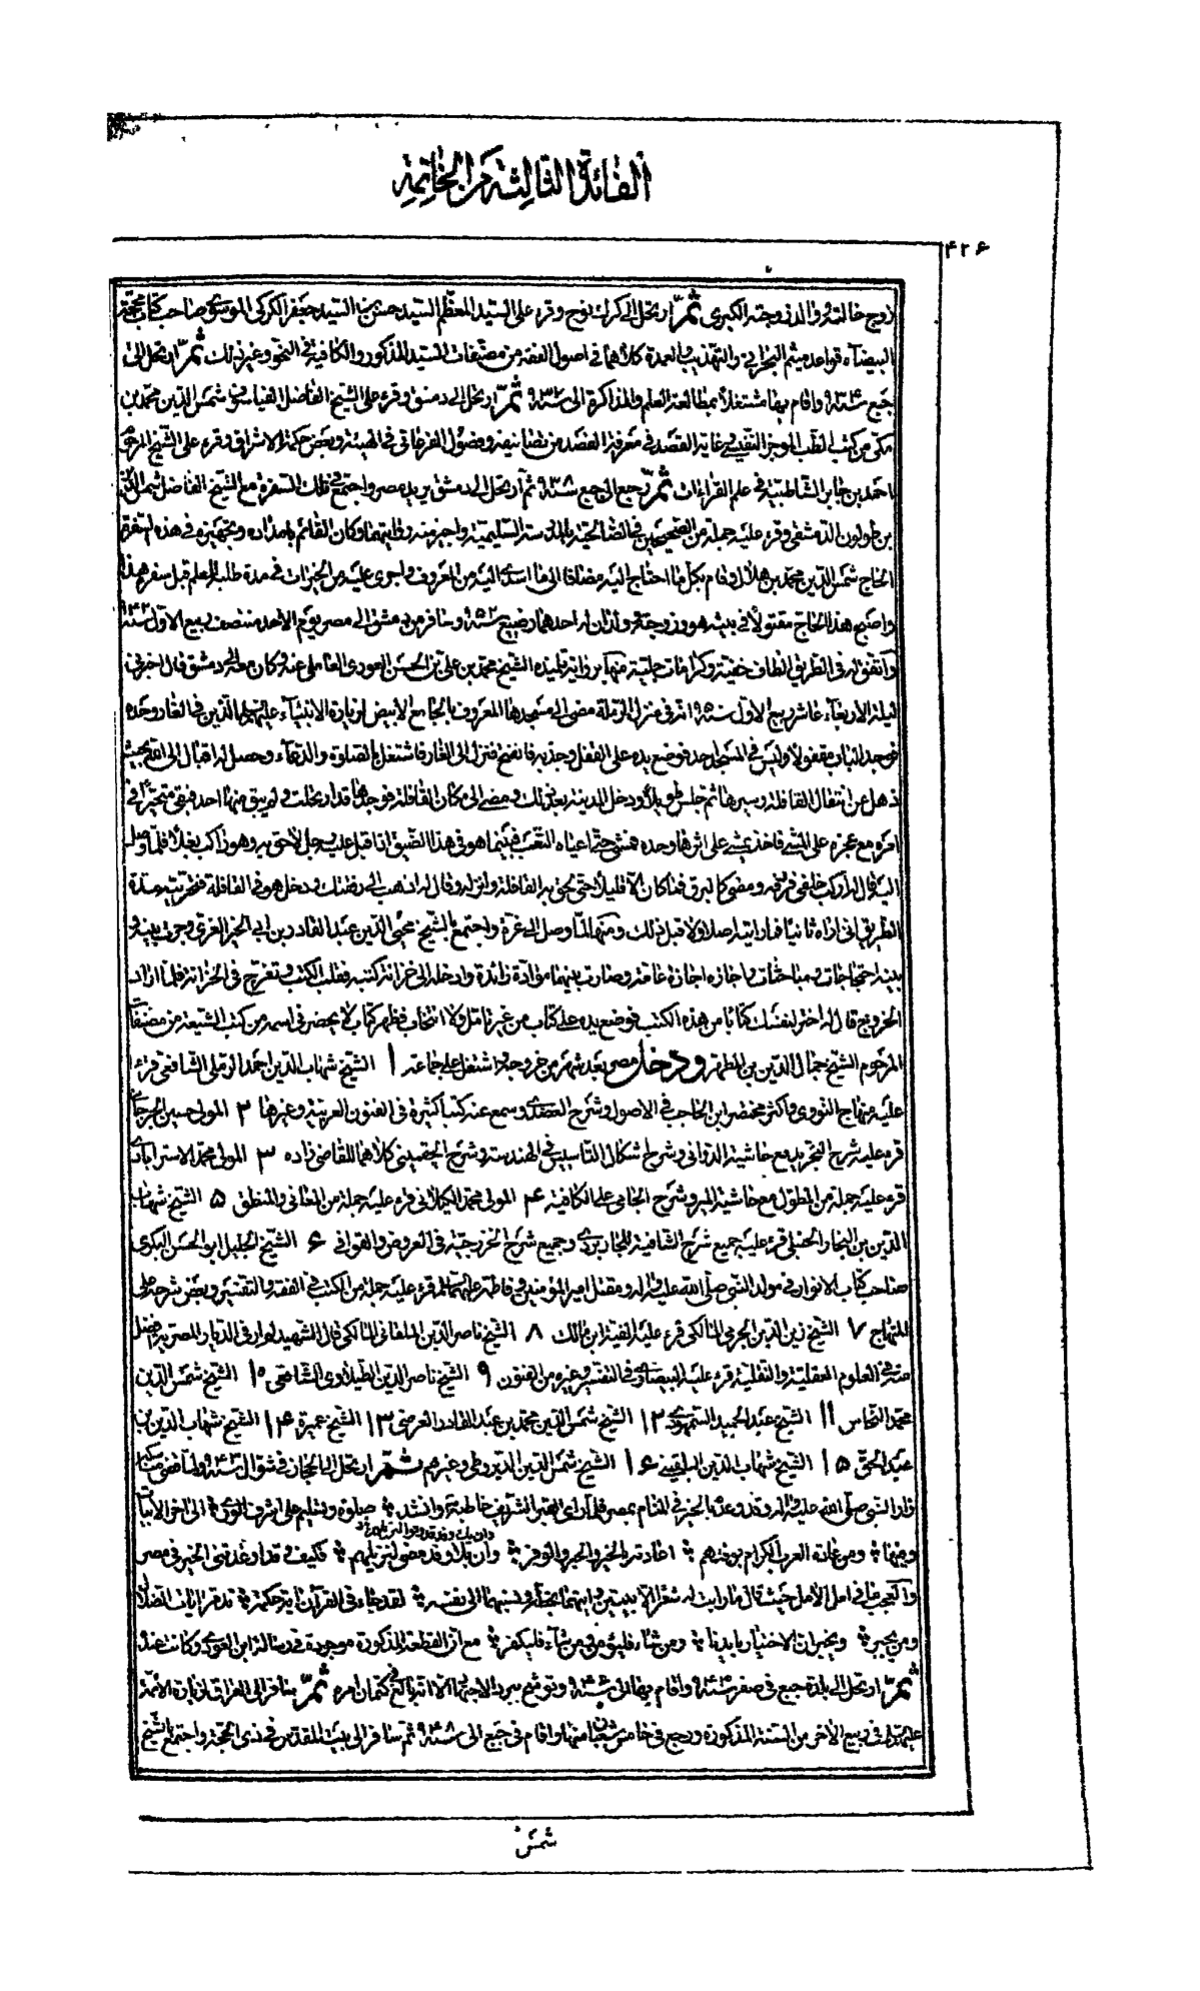 ألفائدة الثالثة من الخاتمة
۴۲۶
زوج خالته والد زوجته الكبرى ثمّ ارتحل الى كرك نوح وقرء على السيد المعظّم السيد حسن بن السيد جعفر الكركى الموسوى صاحب كتاب محجّة
البيضآء قواعد ميثم البحرانى والتهذيب والعمدة كلاهما فى اصول الفقه من مصنفات السيد المذكور والكافية فى النحو وغير ذلك ثمّ ارتحل الى
جبع سنة واقام بها مشتغلا بمطالعة العلم والمذاكرة الى سنة ۹۳۷ ثمّ ارتحل الى دمشق وقرء على الشيخ الفاضل الفيلسوف شمس الدين محمد بن
مكى من كتب الطب الموجز النفيسى وغاية القصد فى معرفة الفصد من تصانيفه وفصول الفرغانى فى الهيئة وبعض حكمة الاشراق وقرء على الشيخ المرحوم
احمد بن جابر الشاطبية فى علم القراءات ثمّ رجع الى جبع سنة ۹۳۸ ثم ارتحل الى دمشق يريد مصر واجتمع فى تلك السفرة مع الشيخ الفاضل شمس الدين
بن طولون الدمشقى وقرء عليه جملة من الصحيحين فى الصالحية بالمدرسة السليمية واجيز منه روايتهما وكان القائم بامداده وتجهيزه فى هذه السفرة
الحاج شمس الدين محمد بن هلال وقام بكل ما احتاج اليه مضافا الى ما اسدى اليه من المعروف واجرى عليه من الخيرات فى مدة طلبه للعلم قبل سفره هذا
واصبح هذا الحاج مقتولا فى بيته هو وزوجته وولدان له احدهما رضيع سنة ۹۵۲ وسافر من دمشق الى مصر يوم الاحد منتصف ربيع الاول سنة ۹۴۲
واتفق له فى الطريق الطاف خفية وكرامات جلية منها برواية تلميذه الشيخ محمد بن على بن الحسن العودى العاملى عنه وكان معه الى دمشق قال اخبرنى
ليلة الاربعاء عاشر ربيع الاول سنة انه فى منزل الرملة مضى الى مسجدها المعروف بالجامع الابيض لزيارة الانبيآء عليهم السلام الذين فى الغار وحده
فوجد الباب مقفولا وليس فى المسجد احد فوضع يده على القفل وجذبه فانفتح فنزل الى الغار فاشتغل بالصلوة والدعآء وحصل له اقبال الى الله بحيث
ذهل عن انتقال القافلة وسيرها ثم جلس طويلا ودخل المدينة بعد ذلك ومضى الى مكان القافلة فوجدها قد ارتحلت ولم يبق منها احد فبقى متحيرا فى
امره مع عجزه على المشى فاخذ يمشى على اثرها وحده فمشى حتى اعياه التعب فبينما هو فى هذا الضيق اذا قبل عليه رجل لاحق به وهو راكب بغلا فلما وصل
اليه قال له اركب خلفى فردفه ومضى كالبرق فما كان الا قليلا حتى لحق به القافلة وانزله وقال له اذهب الى رفقتك ودخل هو فى القافلة فتحريته مدة
الطريق انى اراه ثانيا فما رايته اصلا ولا قبل ذلك ومنها لما وصل الى غزة واجتمع بالشيخ محيى الدين عبد القادر بن ابى الخير الغزى وجرت بينه و
بينه احتجاجات ومباحثات واجازه اجازة عامة وصارت بينهما مودة زائدة وادخله الى خزانة كتبه فقلب الكتب وتفرج فى الخزانة فلما اراد
الخروج قال له اختر لنفسك كتابا من هذه الكتب فوضع يده على كتاب من غير تامل ولا انتخاب فظهر كتاب لا يحضرنى اسمه من كتب الشيعة من مصنفات
المرحوم الشيخ جمال الدين بن المطهر ودخل مصر بعد شهر من خروجه واشتغل على جماعة ۱ الشيخ شهاب الدين احمد الرملى الشافعى قرء
عليه منهاج النووى واكثر مختصر ابن الحاجب فى الاصول وشرح العضدى وسمع عنه كتبا كثيرة فى الفنون العربية وغيرها ۲ المولى حسين الجرجانى
قرء عليه شرح التجريد مع حاشية الدوانى وشرح اشكال التاسيس فى الهندسة وشرح الچغمينى كلاهما للقاضى زاده ۳ المولى محمد الاسترابادى
قرء عليه جملة من المطول مع حاشية المير وشرح الجامى على الكافية ۴ المولى محمد الكيلانى قرء عليه جملة من المعانى والمنطق ۵ الشيخ شهاب
الدين بن النجار الحنبلى قرء عليه جميع شرح الشافية للجاربردى وجميع شرح الخزرجية فى العروض والقوافى ۶ الشيخ الجليل ابو الحسن البكرى
صاحب كتاب الانوار فى مولد النبى صلى الله عليه واله ومقتل امير المؤمنين وفاطمة عليهما السلام قرء عليه جملة من الكتب فى الفقه والتفسير وبعض شرحه على
المنهاج ۷ الشيخ زين الدين الجرمى المالكى قرء عليه الفية ابن مالك ۸ الشيخ ناصر الدين الملقانى المالكى قال الشهيد لم ار فى الديار المصرية افضل
منه فى العلوم العقلية والنقلية قرء عليه البيضاوى فى التفسير وغيره من الفنون ۹ الشيخ ناصر الدين الطبلاوى الشافعى ۱۰ الشيخ شمس الدين
محمد النحاس ۱۱ الشيخ عبد الحميد السمهودى ۱۲ الشيخ شمس الدين محمد بن عبد القادر العرضى ۱۳ الشيخ عميرة ۱۴ الشيخ شهاب الدين بن
عبد الحق ۱۵ الشيخ شهاب الدين البلقينى ۱۶ الشيخ شمس الدين الديروطى وغيرهم ثمّ ارتحل الى الحجاز فى شوال سنة ولما قضى مناسكه
زار النبى صلى الله عليه واله وقد وعده بالخير فى المنام بمصر فلما راى القبر الشريف خاطبه وانشد صلوة وتسليم على اشرف الورى الى اخر الابيات
ومنها ومن عادة العرب الكرام بوفدهم اعادته بالخير والحبر والوفر وان قد مضى لنزيلهم فكيف وقد اوعدتنى الخير فى مصر
والعجب ما فى امل الامل حيث قال ما رايت له شعرا الا بيتين رايتهما بخطه ونسبهما الى نفسه لقد جاء فى القرآن آية حكمة تدمر آيات الضلال
ومن يجبر وتخبر ان الاختيار بايدينا ومن شاء فليؤمن ومن شآء فليكفر مع ان القطعة المذكورة موجودة فى رسالة ابن العودى وكانت عنده
ثمّ ارتحل الى بلدة جبع فى صفر سنة واقام بها الى سنة وتوشح ببرد الاجتهاد الا انه بالغ فى كتمان امره ثمّ سافر الى العراق لزيارة الائمة
عليهم السلام فى ربيع الآخر من السنة المذكورة ورجع فى خامس شعبان منها واقام فى جبع الى سنة ۹۴۸ ثم سافر الى بيت المقدس فى ذى الحجة واجتمع بالشيخ
شمس